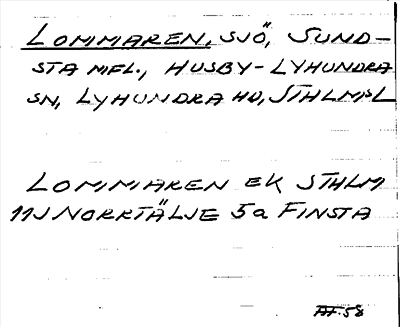 LOMMAREN, SJÖ, SUND-
STA MFL., HUSBY-LYHUNDRA
SN, LYHUNDRA HD, STHLMS L
LOMMAREN EK STHLM
11J NORRTÄLJE 5a FINSTA
AF. 58